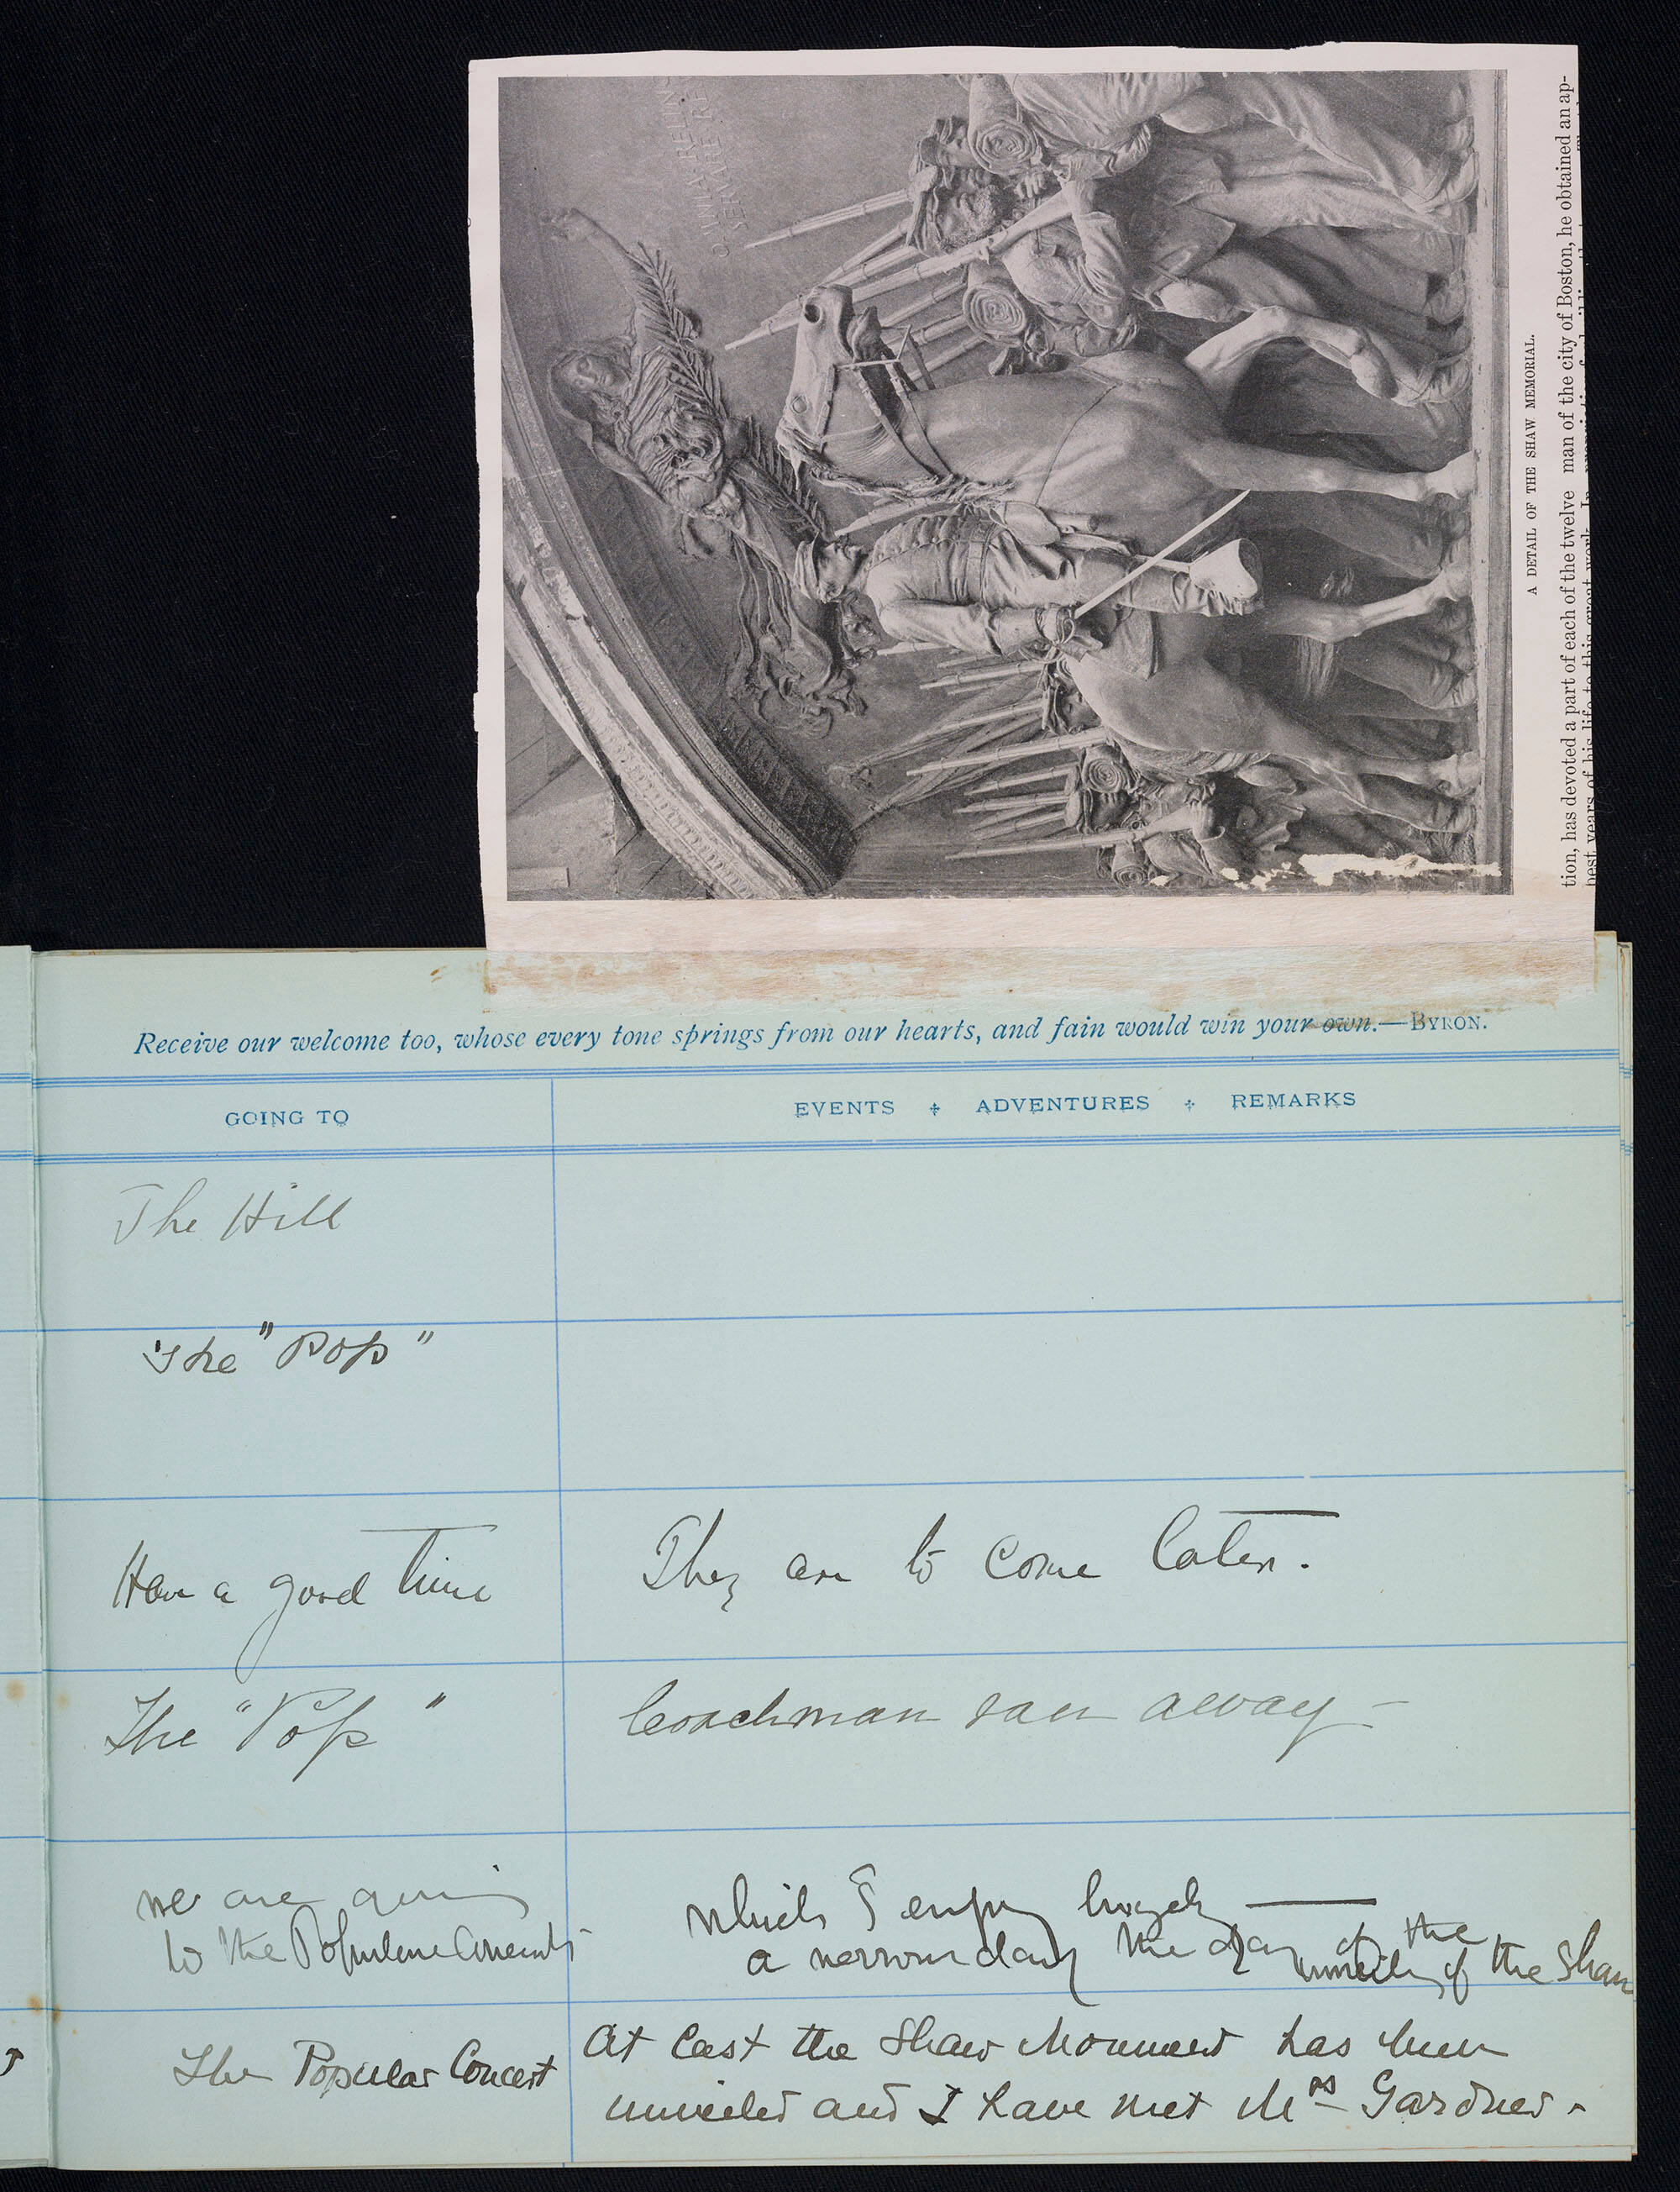 OMNIA RELINQ
SERVARE RE
A DETAIL OF THE SHAW MEMORIAL.
tion, has devoted a part of each of the twelve
best years of his life to this great work. In
man of the city of Boston, he obtained an ap-
Receive our welcome too, whose every tone springs from our hearts, and fain would win your own.—BYRON.
GOING TO
EVENTS ✣ ADVENTURES ✣ REMARKS
The Hill
The "Pop"
Have a good time
They are to come later.
The "Pop"
Coachman ran away —
we are going
to the Populaire Concerts
which I enjoy hugely —
a nervous day the day of the
unveiling of the Shaw
The Popular Concert
At last the Shaw Monument has been
unveiled and I have met Mrs Gardner.